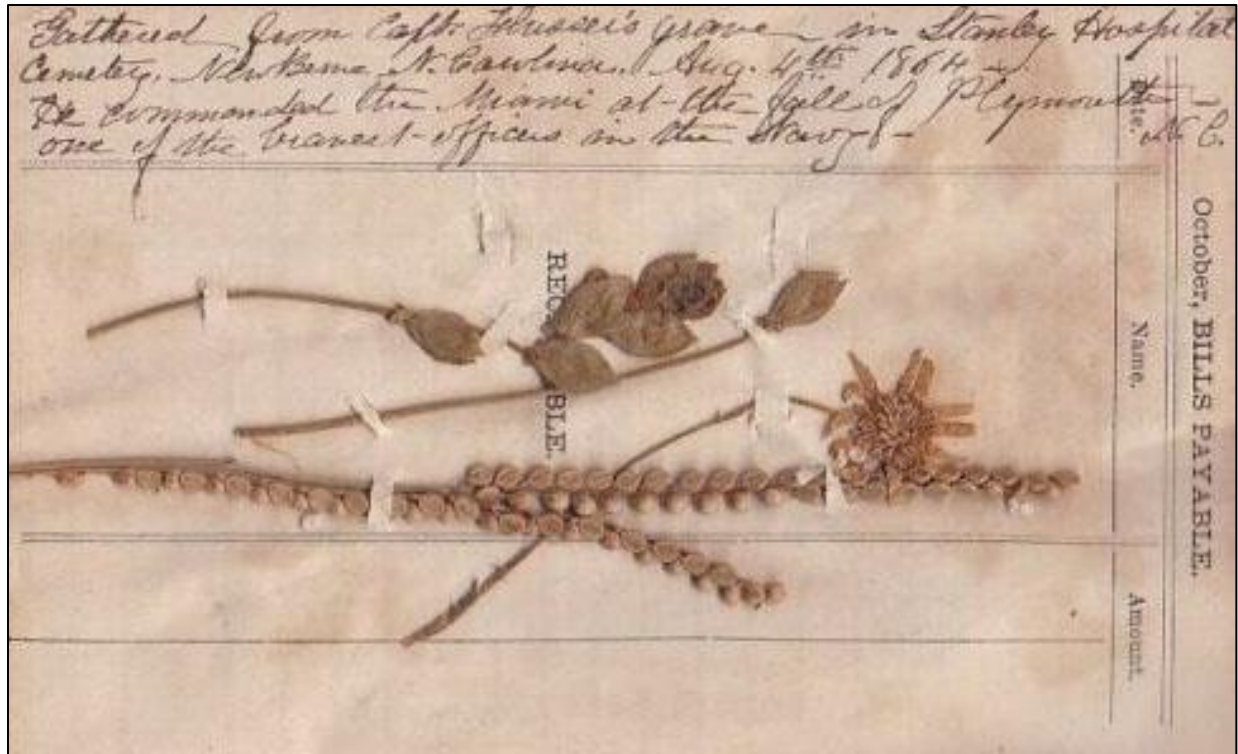 Gathered from Capt. Flusser's grave in Stanley Hospital
Cemetery. New Berne, N. Carolina. Aug. 4th 1864 -
He commanded the Miami at the fall of Plymouth - N C.
one of the bravest officers in the Navy -
October, BILLS PAYABLE.
Date.
Name.
Amount.